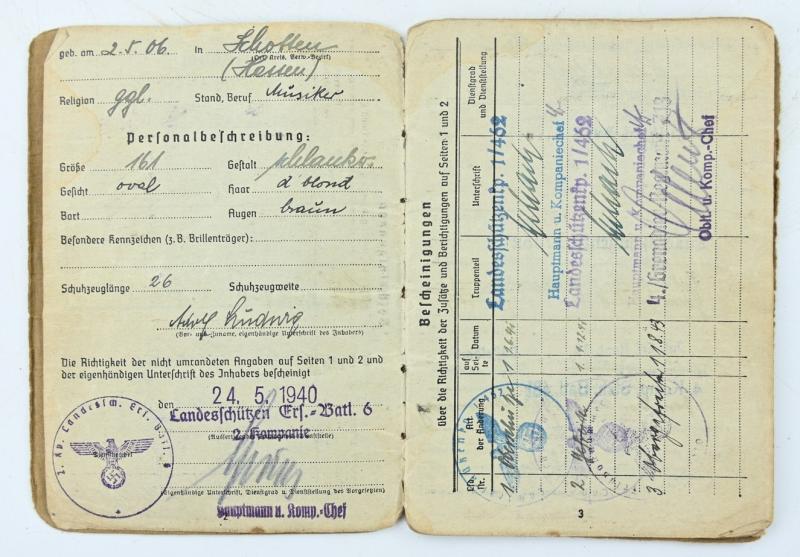 geb. am 2.5.06. in Schotten
(Ort, Kreis, Verw.-Bezirk)
(Hessen)
Religion ggl. Stand, Beruf Musiker
Personalbeschreibung:
Größe 161 Gestalt schlank
Gesicht oval Haar d'blond
Bart Augen braun
Besondere Kennzeichen (z. B. Brillenträger):
Schuhzeuglänge 26 Schuhzeugweite
Adolf Ludwig
(Vor- und Zuname, eigenhändige Unterschrift des Inhabers)
Die Richtigkeit der nicht umrandeten Angaben auf Seiten 1 und 2 und
der eigenhändigen Unterschrift des Inhabers bescheinigt
den 24. 5. 1940
Landesschützen Ers.-Batl. 6
2. Kompanie
(eigenhändige Unterschrift, Dienstgrad u. Dienststellung des Vorgesetzten)
Hauptmann u. Komp.-Chef
Bescheinigungen
über die Richtigkeit der Zusätze und Berichtigungen auf Seiten 1 und 2
Lfd. Nr. Art der Änderung auf Seite Datum Truppenteil Unterschrift Dienstgrad und Dienststellung
1 Landesschützenkp. 1/462
Hauptmann u. Kompaniechef
2 Landesschützenkp. 1/462
Hauptmann u. Kompaniechef
3 1 1.8.43 4./Grenadier-Regiment 713
Obltl. u. Komp.-Chef
3